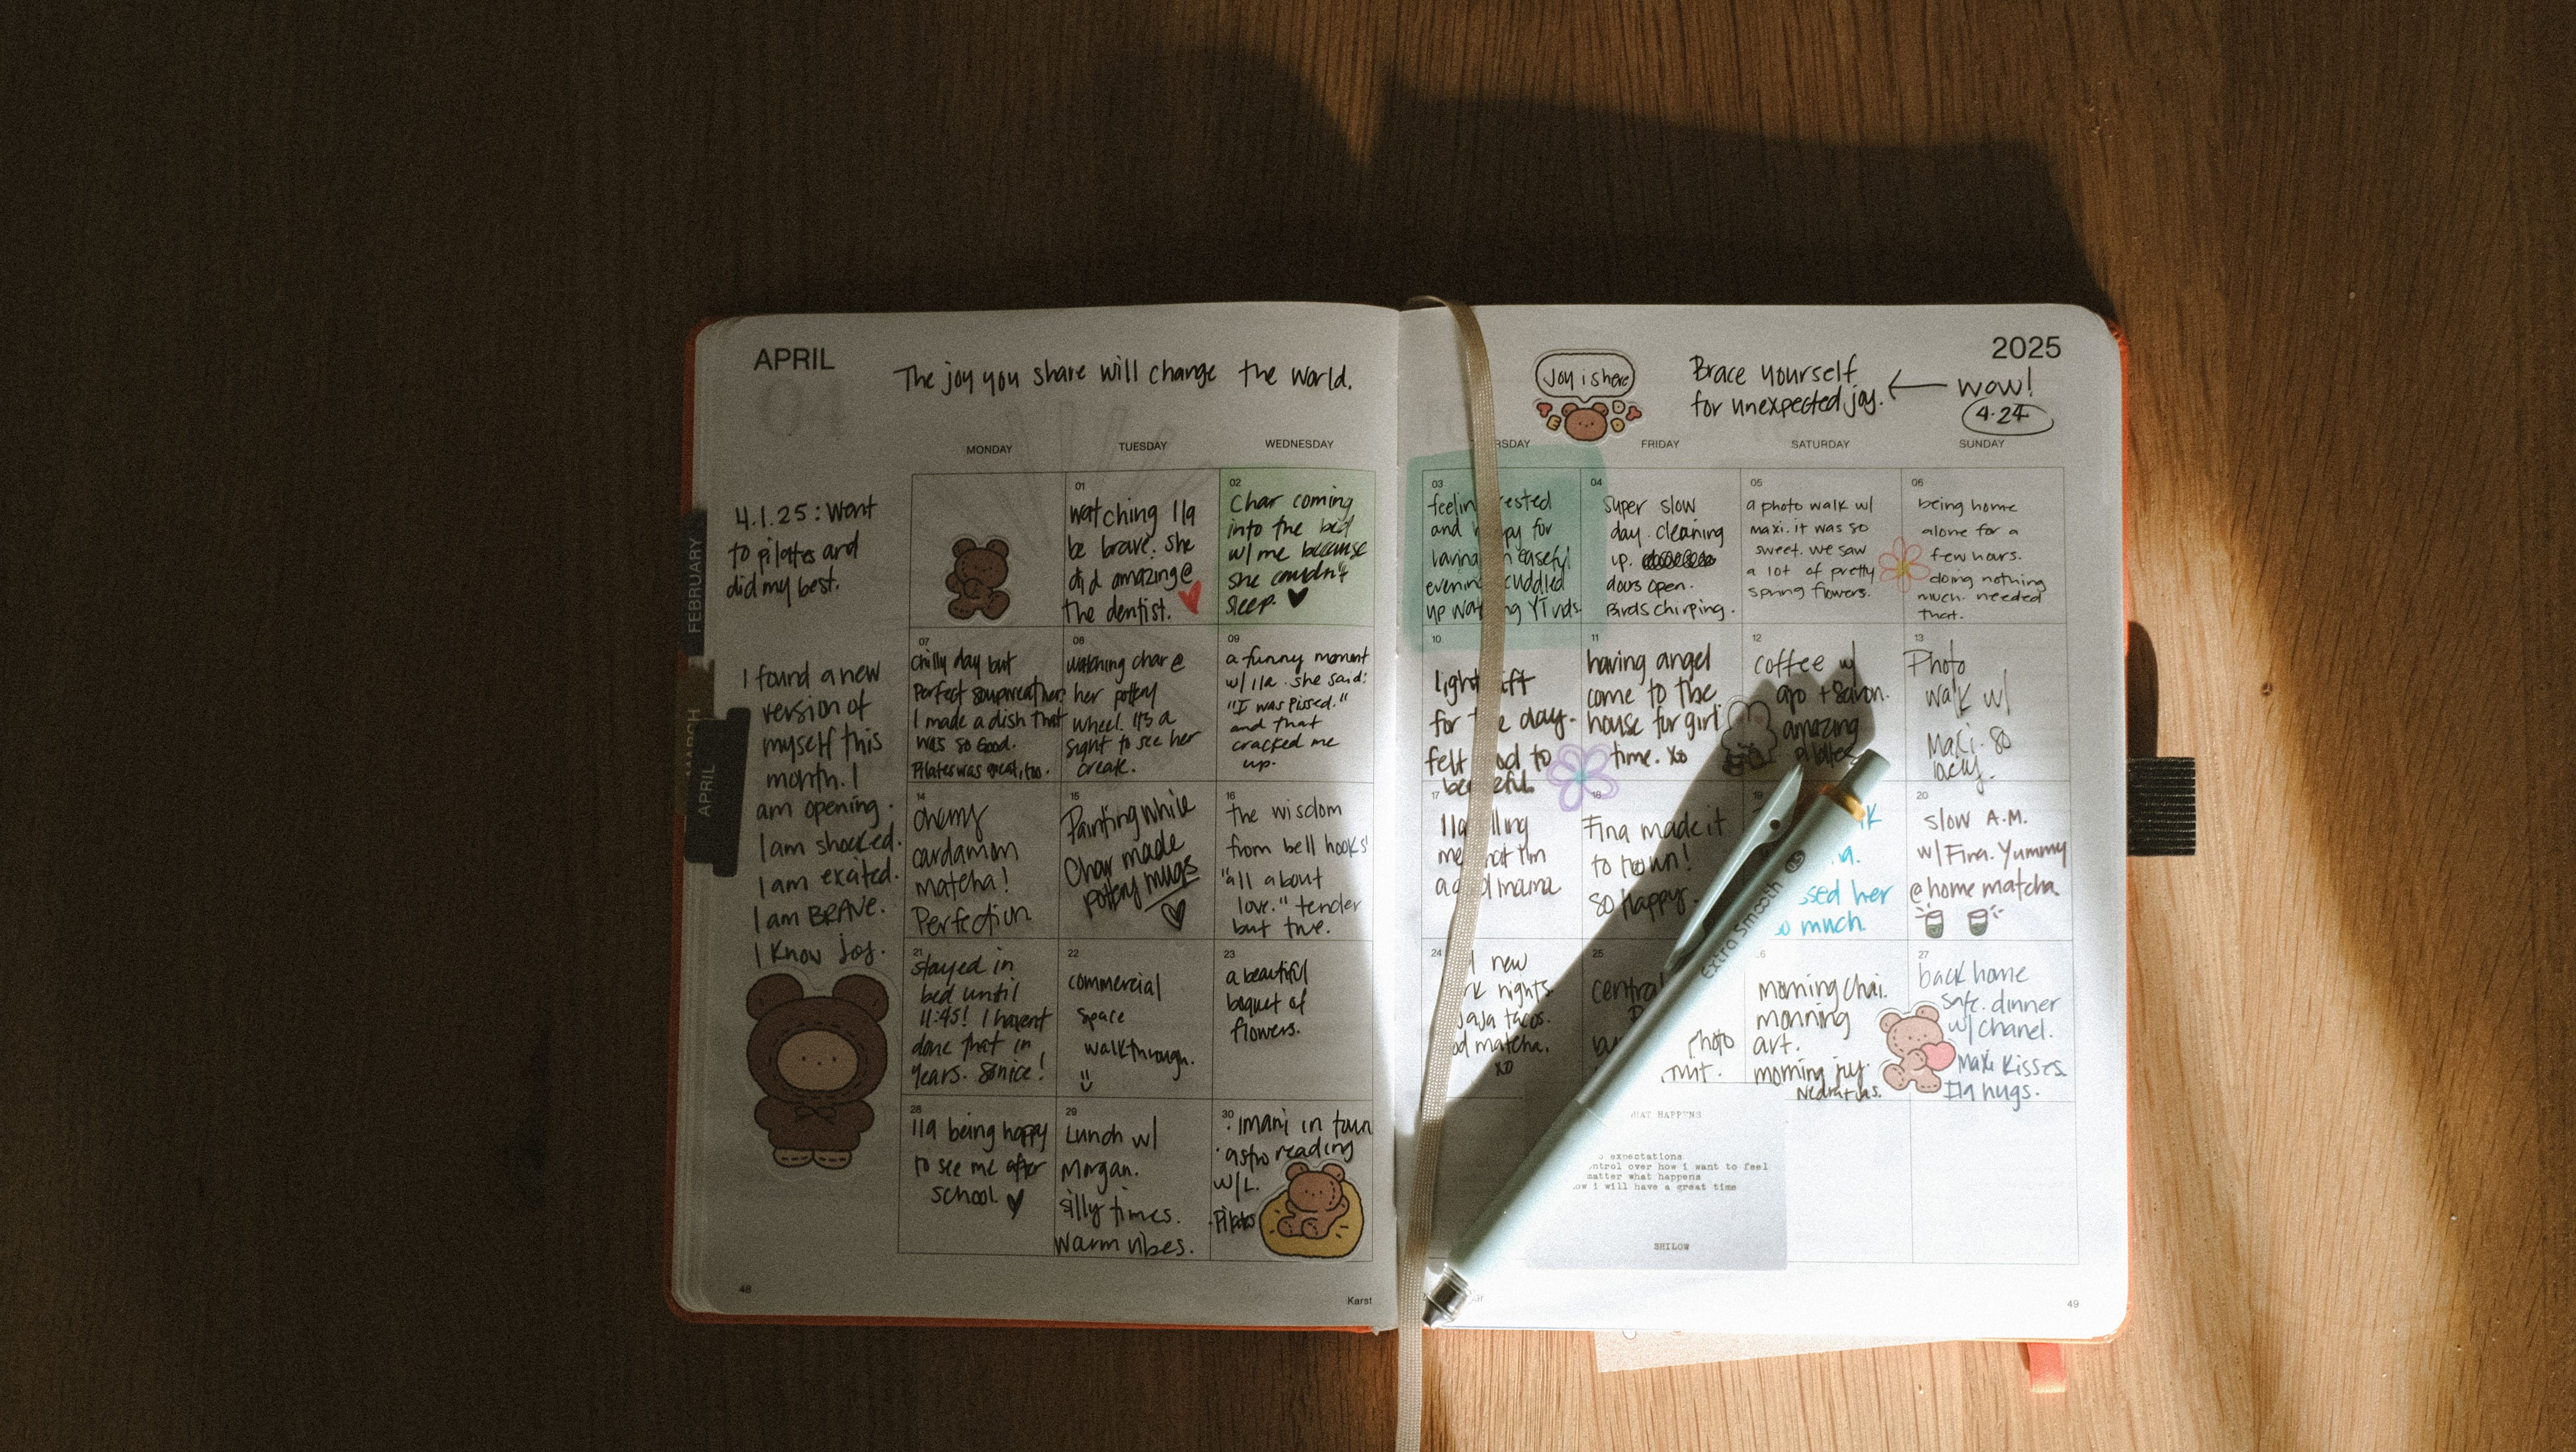 APRIL
The joy you share will change the world.
Joy is here
Brace yourself
for unexpected joy.
wow!
4.24
2025
MONDAY
TUESDAY
WEDNESDAY
RSDAY
FRIDAY
SATURDAY
SUNDAY
FEBRUARY
MARCH
APRIL
4.1.25: Went
to pilates and
did my best.
I found a new
version of
myself this
month. I
am opening.
I am shocked.
I am excited.
I am BRAVE.
I know joy.
01
watching Ila
be brave. she
did amazing @
the dentist.
02
Char coming
into the bed
w/ me because
she couldn't
sleep.
03
feelin rested
and for
evenin cuddled
up wat ng YT vids
04
super slow
day. cleaning
up.
doors open.
Birds chirping.
05
a photo walk w/
maxi. it was so
sweet. we saw
a lot of pretty
spring flowers.
06
being home
alone for a
few hours.
doing nothing
much. needed
that.
07
chilly day but
Perfect soup weather.
I made a dish that
was so good.
Pilates was great, too.
08
watching char @
her pottery
wheel. it's a
sight to see her
create.
09
a funny moment
w/ Ila. she said:
"I was pissed."
and that
cracked me
up.
10
light
for day.
felt to
11
having angel
come to the
house for girl
time. xo
12
coffee w/
amazing
pilates
13
Photo
walk w/
Maxi. so
14
cardamom
matcha!
Perfection
15
Painting while
Char made
pottery mugs
16
the wisdom
from bell hooks'
"all about
love." tender
but true.
17
Ila lling
me hat I'm
a d mama
18
Fina made it
to town!
so happy.
19
sed her
o much.
20
slow A.M.
w/ Fina. Yummy
@ home matcha
21
stayed in
bed until
11:45! I havent
done that in
years. So nice!
22
commercial
space
walkthrough.
23
a beautiful
boquet of
flowers.
24
new
rk nights.
tacos.
od matcha.
xo
25
central
photo
26
morning chai.
morning
art.
morning joy.
27
back home
safe. dinner
w/ chanel.
Maxi kisses.
Ila hugs.
28
Ila being happy
to see me after
school
29
Lunch w/
Morgan.
silly times.
Warm vibes.
30
· imani in town
· astro reading
w/ L.
· Pilates
Extra Smooth 0.5
HAT HAPPENS
o expectations
ntrol over how i want to feel
matter what happens
ow i will have a great time
SHILOW
48
Karst
49